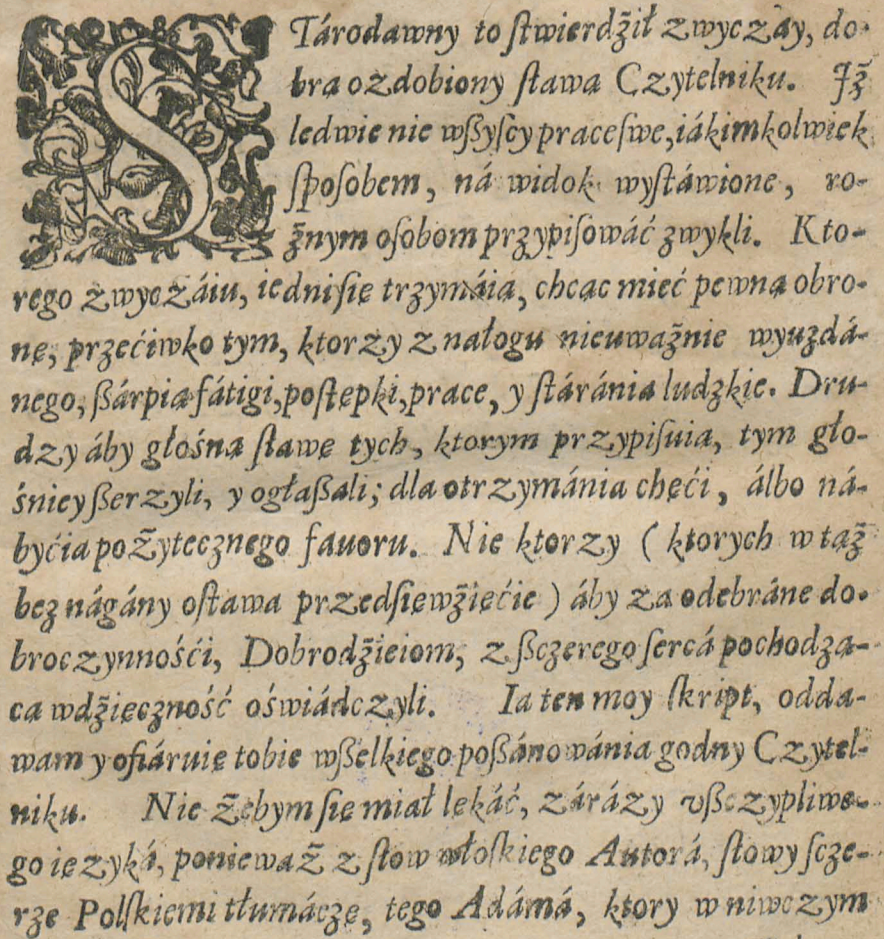 STárodawny to ſtwierdźił zwyczay, do-
bra ozdobiony ſławą Czytelniku. Jż
ledwie nie wßyſcy prace ſwe, iákimkolwiek
ſpoſobem, ná widok wyſtáwione, ro-
żnym oſobom przypiſowáć zwykli. Kto-
rego zwyczáiu, iedni ſię trzymáią, chcąc mieć pewną obro-
nę, przećiwko tym, ktorzy z nałogu nieuważnie wyuzdá-
nego, ßárpią fátigi, poſtępki, prace, y ſtáránia ludzkie. Dru-
dzy áby głośną ſławę tych, ktorym przypiſuią, tym gło-
śniey ßerzyli, y ogłaßali; dla otrzymánia chęći, álbo ná-
byćia pożytecznego fauoru. Nie ktorzy ( ktorych w táż
bez nágány oſtawa przedſięwźięćie ) áby za odebráne do-
broczynnośći, Dobrodźieiom, z ßczerego ſercá pochodzą-
cą wdźięczność oświádczyli. Ia ten moy ſkript, odda-
wam y ofiáruię tobie wßelkiego poßánowánia godny Czytel-
niku. Nie żebym ſię miał lękáć, zárázy vßczypliwe-
go ięzyká, ponieważ z ſłow włoſkiego Autorá, ſłowy ſcze-
rze Polſkiemi tłumáczę, tego Adámá, ktory w niwczym